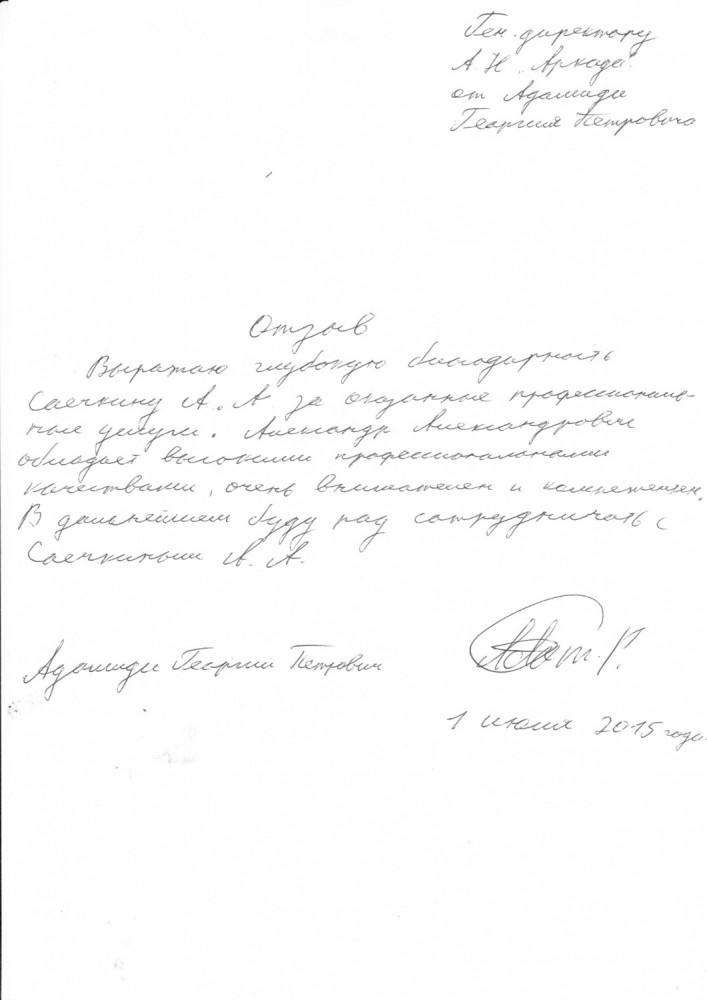 Ген. директору
А Н "Аркада"
от Адамиди
Георгия Петровича
Отзыв
Выражаю глубокую благодарность
Саечкину А. А. за оказанные профессиональ-
ные услуги. Александр Александрович
обладает высокими профессиональными
качествами, очень внимателен и компетентен.
В дальнейшем буду рад сотрудничать с
Саечкиным А. А.
Адамиди Георгий Петрович
1 июля 2015 года